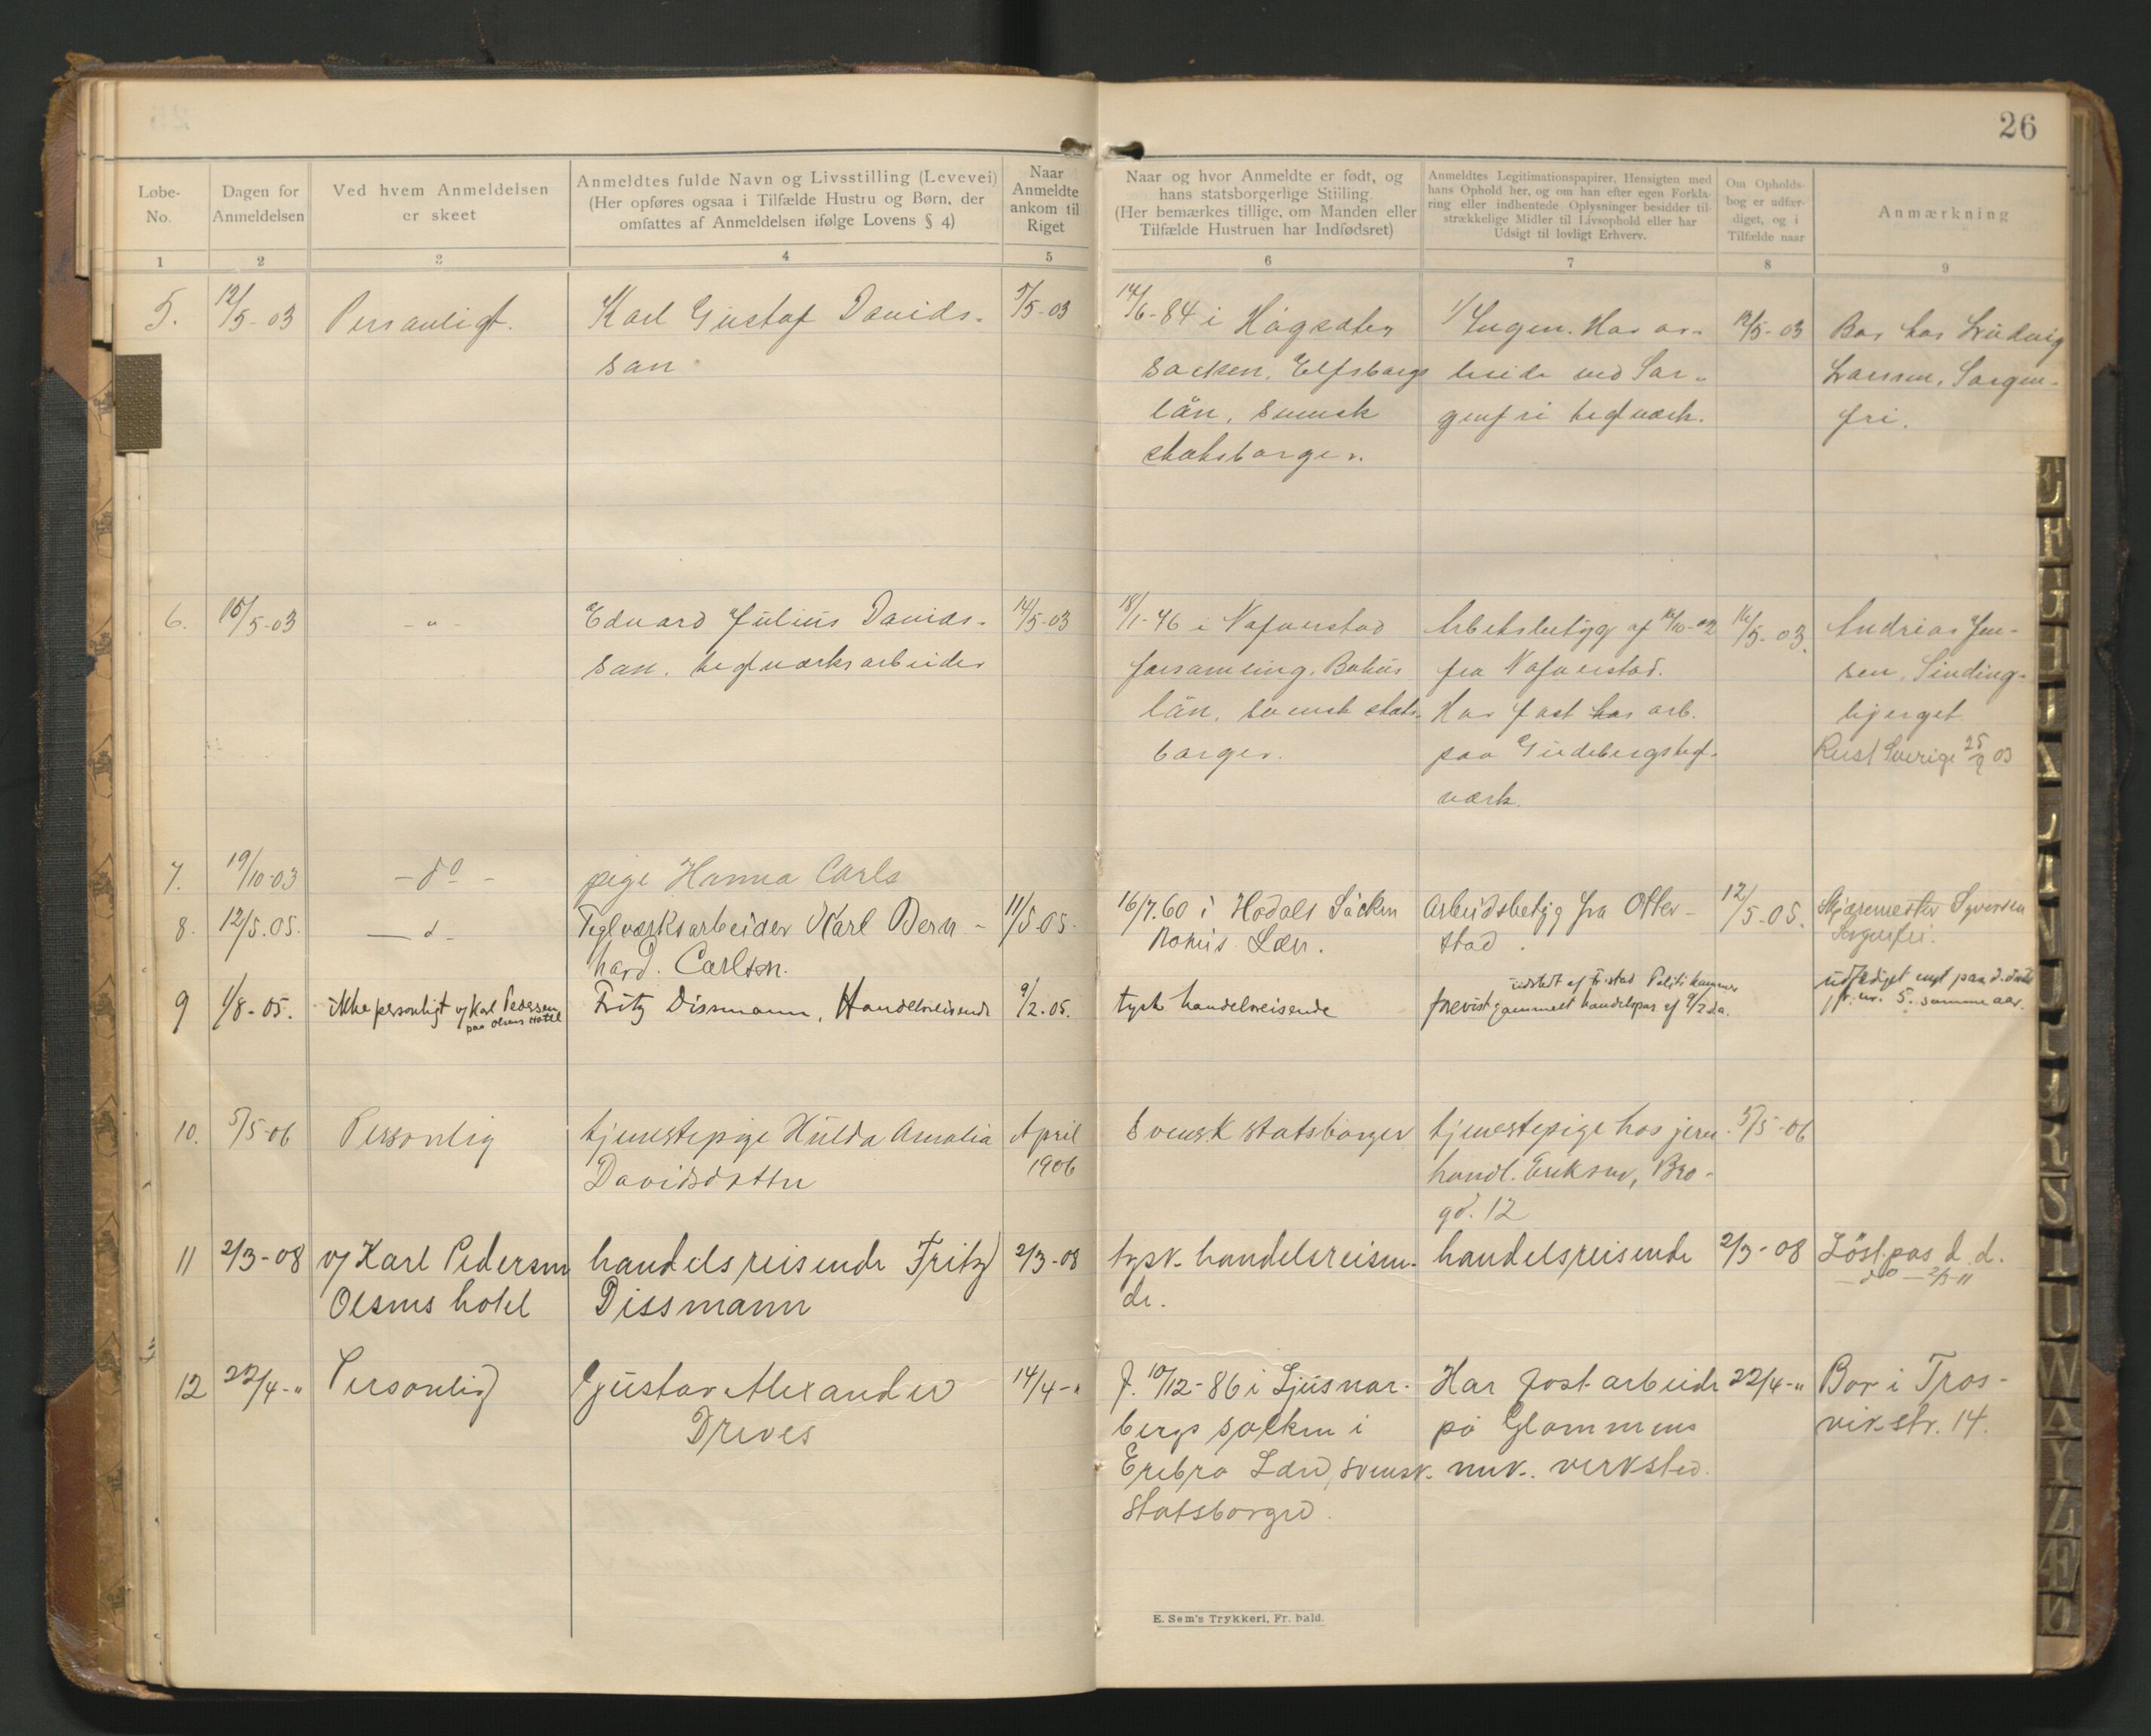 26
Løbe-
No.
Dagen for
Anmeldelsen
Ved hvem Anmeldelsen
er skeet
Anmeldtes fulde Navn og Livsstilling (Levevei)
(Her opføres ogsaa i Tilfælde Hustru og Børn, der
omfattes af Anmeldelsen ifølge Lovens § 4)
Naar
Anmeldte
ankom til
Riget
Naar og hvor Anmeldte er født, og
hans statsborgerlige Stiiling.
(Her bemærkes tillige, om Manden eller
Tilfælde Hustruen har Indfødsret)
Anmeldtes Legitimationspapirer, Hensigten med
hans Ophold her, og om han efter egen Forkla-
ring eller indhentede Oplysninger besidder til-
strækkelige Midler til Livsophold eller har
Udsigt til lovligt Erhverv.
Om Opholds-
bog er udfær-
diget, og i
Tilfælde naar
Anmærkning
1
2
3
4
5
6
7
8
9
5.
12/5-03
Personligt.
Karl Gustaf Davids-
son
5/5-03
14/6-84 i Högsäter
Socken, Elfsborgs
län, svensk
statsborger.
1/ Ingen. Har ar-
beide ved Sor-
genfri teglværk.
12/5-03
Bor hos Ludvig
Larsen, Sorgen-
fri.
6.
15/5-03
- " -
Edvard Julius Davids-
son. teglværksarbeider
14/5-03
18/1-46 i Nafverstad
forsamling, Bohus
län, svensk stats-
borger.
Arbetsbetyg af
fra Nafverstad.
Har fast arb.
paa Gudebergs tegl-
værk.
16/5-03.
Andreas Jen-
sen, Sinding-
bjerget
Reist Sverige 25/9 03
7.
19/10-03
- do -
pige Hanna Carls
8.
12/5.05.
- d -
Teglværksarbeider Karl Bern-
hard. Carlson.
11/5-05.
16/7.60 i Hodals Säcken
Bohus Len.
Arbeidsbetyg fra Otter-
stad.
12/5-05.
Skjæremester Syversen
Sorgenfri.
9
1/8-05.
ikke personligt v/ Karl Pedersen
paa Olsens Hotel
Fritz Dissmann, Handelsreisende
9/2.05.
tysk handelsreisende
udstedt af Fr.stad Politikammer
forevist gammelt handelspas af 9/2 d.a.
udfærdiget nyt pas d.
jfr. nr. 5. samme aar.
10.
5/5-06
Personlig
tjenestepige Hulda Amalia
Davidsdotter
April
1906
Svensk statsborger
tjenestepige hos jern-
handl. Eriksen, Bro-
gd. 12
5/5-06
11
2/3-08
v/ Karl Pedersen
Olsens hotel
handelsreisende Fritz
Dissmann
2/3-08
tysk. handelsreisen-
de.
handelsreisende
2/3-08
Löst pas d. d.
- do - 2/3-11
12
22/4-"
Personlig
Gustav Alexander
Dreves
14/4-"
f. 10/12-86 i Ljusnar-
bergs socken i
Erebro Læn, svensk.
statsborger.
Har fast arbeide
på Glommens
mek. verksted.
22/4-"
Bor i Tros-
vikstr. 14.
E. Sem's Trykkeri, Fr. hald.
E
F
G
H
I
K
L
M
N
O
P
Q
R
S
T
U
W
A
Y
Z
Æ
Ø